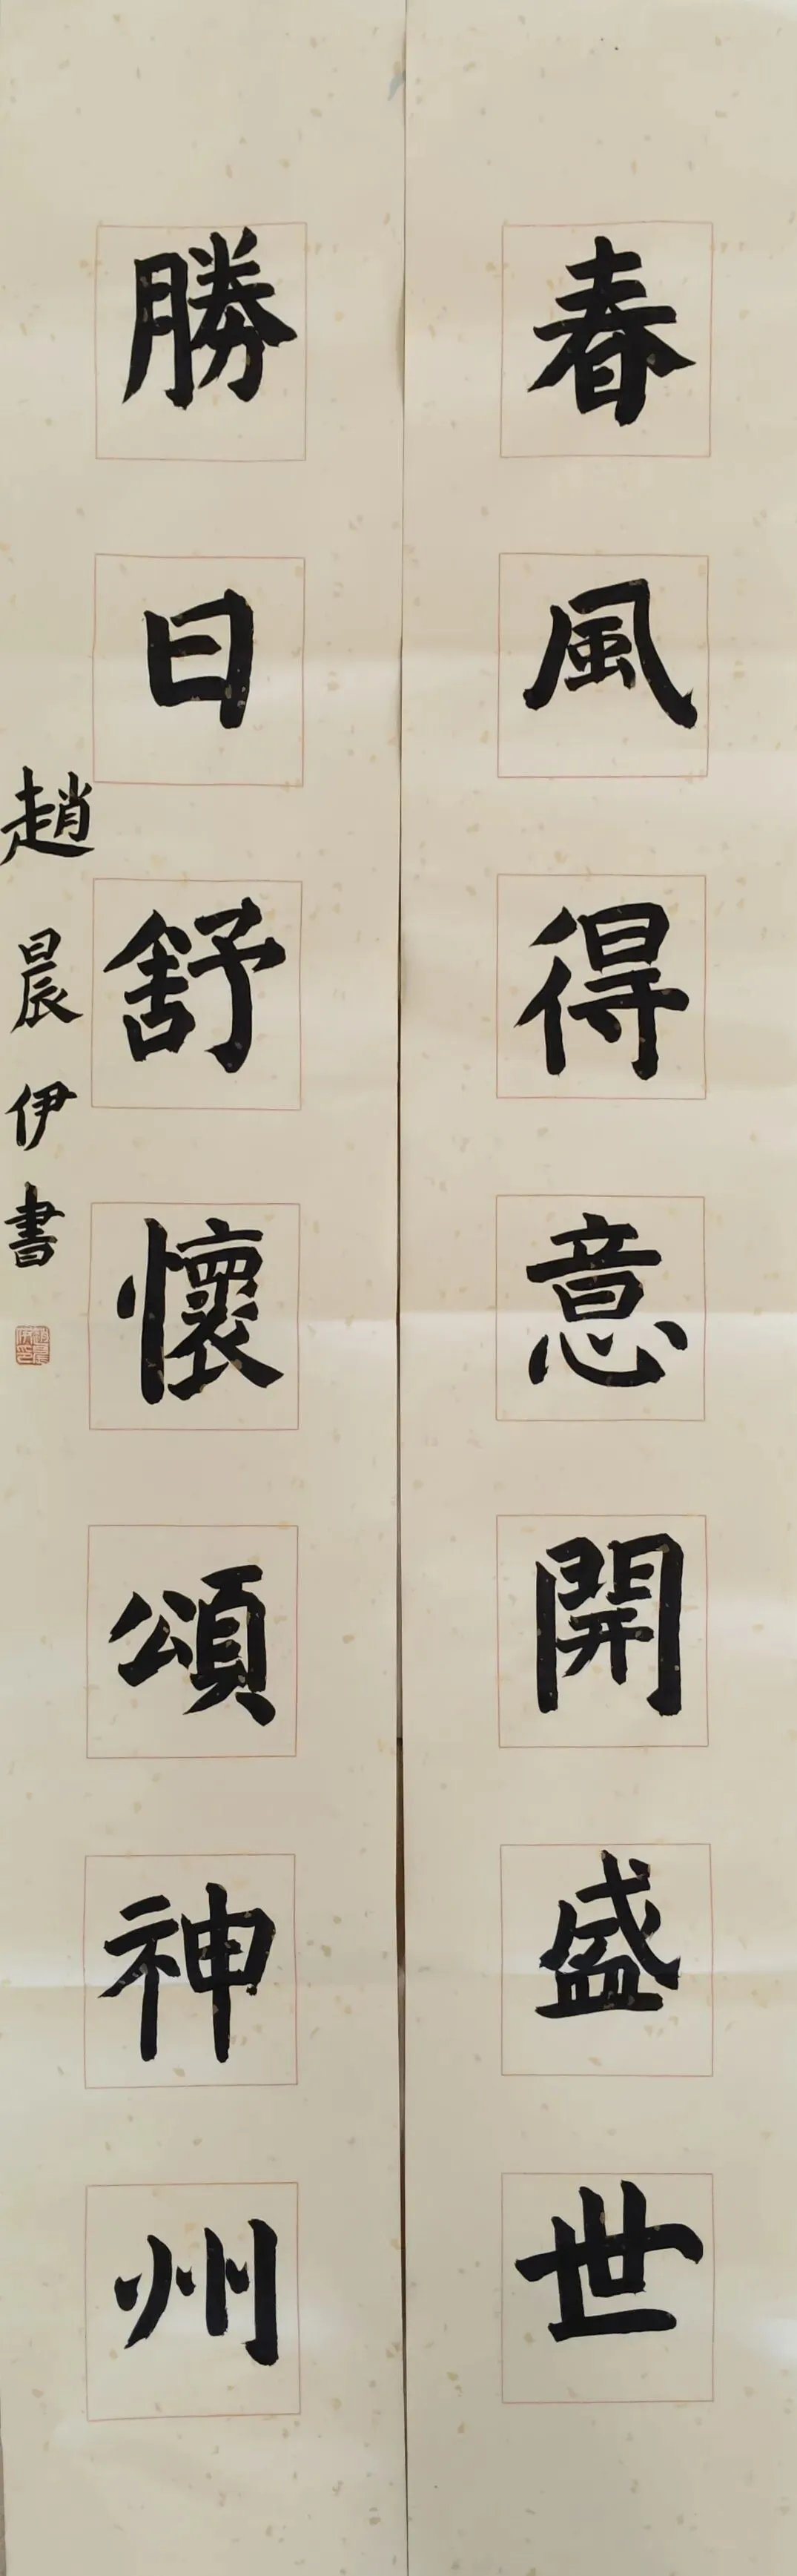 春風得意開盛世
勝日舒懷頌神州
趙晨伊書